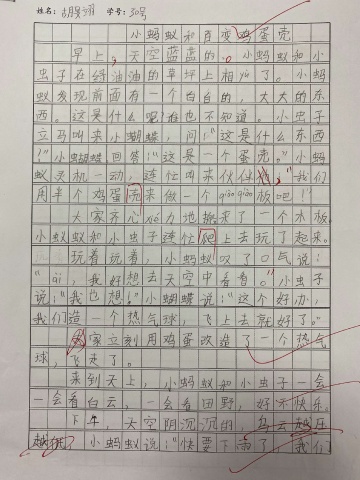 姓名：胡昊翊 学号：30号
小蚂蚁和百变鸡蛋壳
早上，天空蓝蓝的。小蚂蚁和小
虫子在绿油油的草坪上相见了。小蚂
蚁发现前面有一个白白的，大大的东
西。这是什么呢？谁也不知道。小虫子
立马叫来小蝴蝶，问：“这是什么东西
！”小蝴蝶回答：“这是一个蛋壳。”小蚂
蚁灵机一动，连忙叫来伙伴，“我们
用半个鸡蛋壳来做一个qiāoqiāo板吧！”
大家齐心协力地搬来了一个木板，
小蚁蚁和小虫子连忙爬上去玩了起来。
玩着玩着，小蚂蚁叹了口气说：
“ài，我好想去天空中看看。”小虫子
说：“我也想！”小蝴蝶说：“这个好办，
我们造一个热气球，飞上去就好了。”
大家立刻用鸡蛋改造了一个热气
球，飞走了。
来到天上，小蚂蚁和小虫子一会
一会看白云，一会看田野，好不快乐。
下午，天空阴沉沉的，乌云越压
越低，小蚂蚁说：“快要下雨了，我们